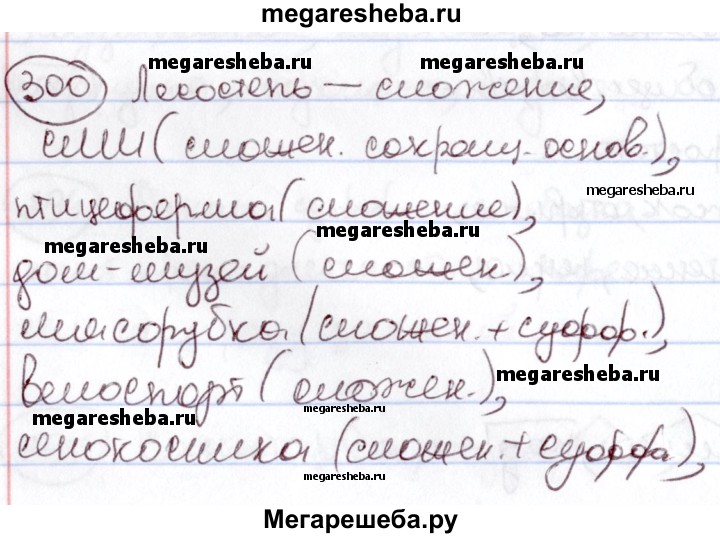 megaresheba.ru
megaresheba.ru megaresheba.ru
300 Лесостепь — сложение,
СМИ (сложен. сокращ. основ.),
megaresheba.ru
птицеферма (сложение),
megaresheba.ru megaresheba.ru
дом-музей (сложен.),
мясорубка (сложен. + суфф.),
megaresheba.ru
велоспорт (сложен.),
megaresheba.ru megaresheba.ru
сенокосилка (сложен. + суффа),
megaresheba.ru
Мегарешеба.ру